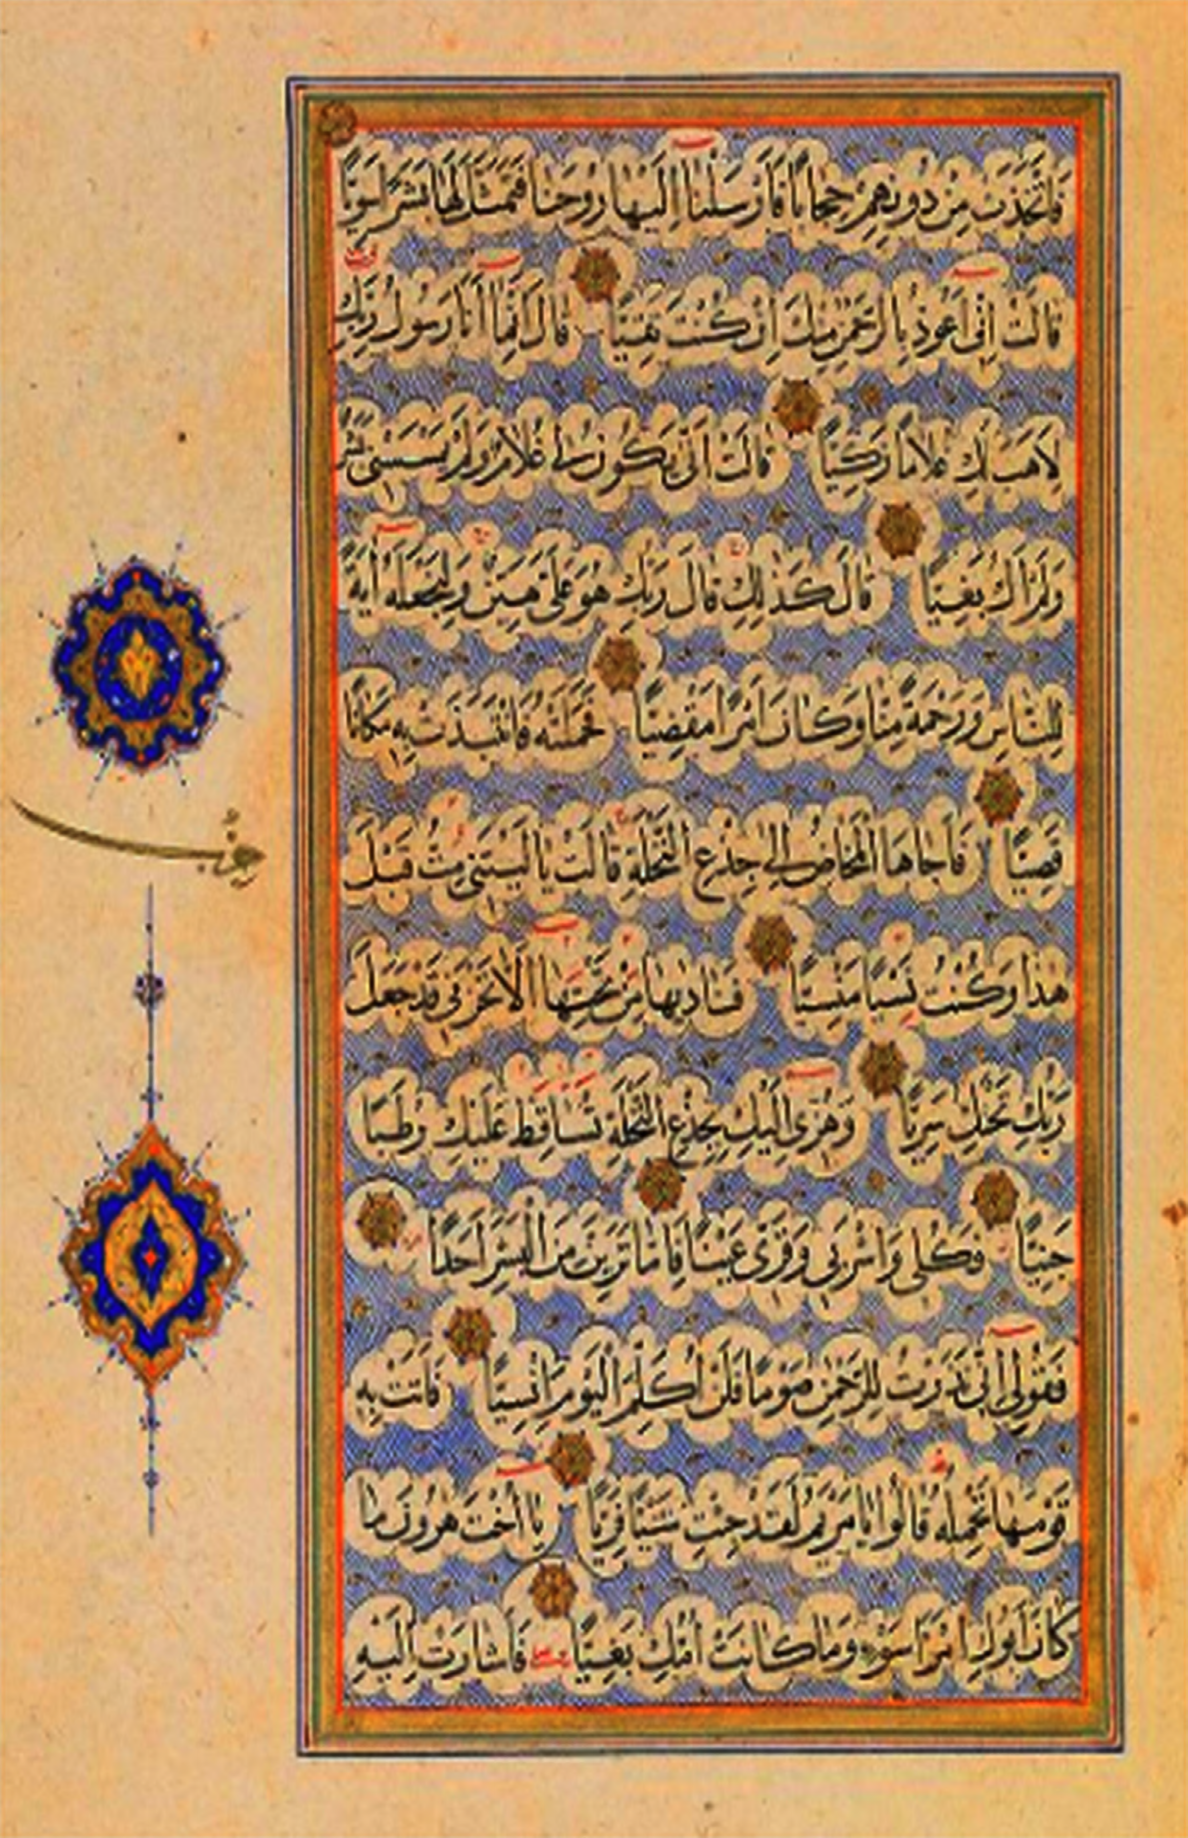 فَاتَّخَذَتْ مِنْ دُونِهِمْ حِجَابًا فَأَرْسَلْنَا إِلَيْهَا رُوحَنَا فَتَمَثَّلَ لَهَا بَشَرًا سَوِيًّا
قَالَتْ إِنِّي أَعُوذُ بِالرَّحْمٰنِ مِنْكَ إِنْ كُنْتَ تَقِيًّا قَالَ إِنَّمَا أَنَا رَسُولُ رَبِّكِ
لِأَهَبَ لَكِ غُلَامًا زَكِيًّا قَالَتْ أَنَّى يَكُونُ لِي غُلَامٌ وَلَمْ يَمْسَسْنِي بَشَرٌ
وَلَمْ أَكُ بَغِيًّا قَالَ كَذٰلِكِ قَالَ رَبُّكِ هُوَ عَلَيَّ هَيِّنٌ وَلِنَجْعَلَهُ آيَةً
لِلنَّاسِ وَرَحْمَةً مِنَّا وَكَانَ أَمْرًا مَقْضِيًّا فَحَمَلَتْهُ فَانْتَبَذَتْ بِهِ مَكَانًا
قَصِيًّا فَأَجَاءَهَا الْمَخَاضُ إِلَى جِذْعِ النَّخْلَةِ قَالَتْ يَا لَيْتَنِي مِتُّ قَبْلَ
هٰذَا وَكُنْتُ نَسْيًا مَنْسِيًّا فَنَادٰيهَا مِنْ تَحْتِهَا أَلَّا تَحْزَنِي قَدْ جَعَلَ
رَبُّكِ تَحْتَكِ سَرِيًّا وَهُزِّي إِلَيْكِ بِجِذْعِ النَّخْلَةِ تُسَاقِطْ عَلَيْكِ رُطَبًا
جَنِيًّا فَكُلِي وَاشْرَبِي وَقَرِّي عَيْنًا فَإِمَّا تَرَيِنَّ مِنَ الْبَشَرِ أَحَدًا
فَقُولِي إِنِّي نَذَرْتُ لِلرَّحْمٰنِ صَوْمًا فَلَنْ أُكَلِّمَ الْيَوْمَ إِنْسِيًّا فَأَتَتْ بِهِ
قَوْمَهَا تَحْمِلُهُ قَالُوا يَا مَرْيَمُ لَقَدْ جِئْتِ شَيْئًا فَرِيًّا يَا أُخْتَ هٰرُونَ مَا
كَانَ أَبُوكِ امْرَأَ سَوْءٍ وَمَا كَانَتْ أُمُّكِ بَغِيًّا فَأَشَارَتْ إِلَيْهِ